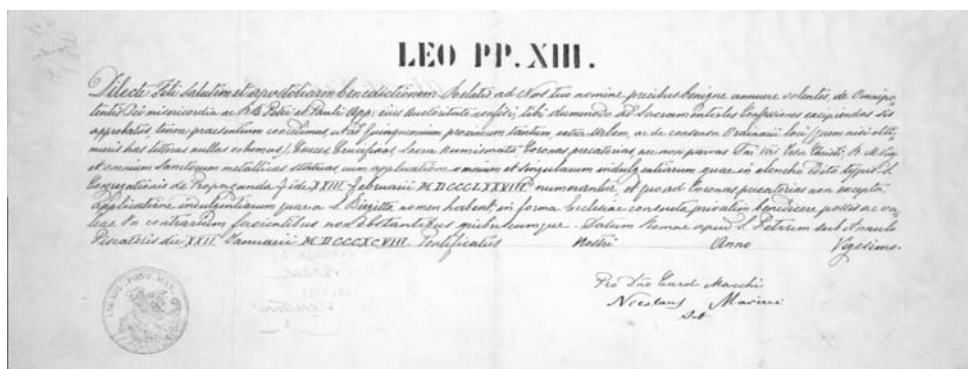 LEO PP. XIII.
Dilecte Fili salutem et apostolicam benedictionem. Relatis ad Nos tuo nomine precibus benigne annuere volentes, de Omnipo-
tentis Dei misericordia ac B.B. Petri et Pauli App. eius auctoritate confisi, tibi dummodo ad Sacramentales Confessiones excipiendas sis
approbatus, tenore praesentium concedimus, ut ad Quinquennium proximum tantum, extra Urbem, ac de consensu Ordinarii loci, quem nisi obtinueris has litteras nullas esse volumus, Cruces, Crucifixos, Sacra Numismata, Coronas precatorias, ac non parvas
et omnium Sanctorum metallicas statuas, cum applicatione omnium et singularum indulgentiarum quae in elencho edito typis S.
Congregationis de Propaganda Fide XXIII Februarii MDCCCLXXVIII numerantur, et quoad Coronas precatorias non excepta
applicatione indulgentiarum quae a S. Birgitta nomen habent, in forma Ecclesiae consueta privatim benedicere possis ac va-
leas. In contrarium facientibus non obstantibus quibuscumque. Datum Romae apud S. Petrum sub Annulo
Piscatoris die XXII Januarii MDCCCXCVIII. Pontificatus Nostri Anno Vigesimo.
Pro Dno Card. Macchi
Nicolaus Marini
Sub